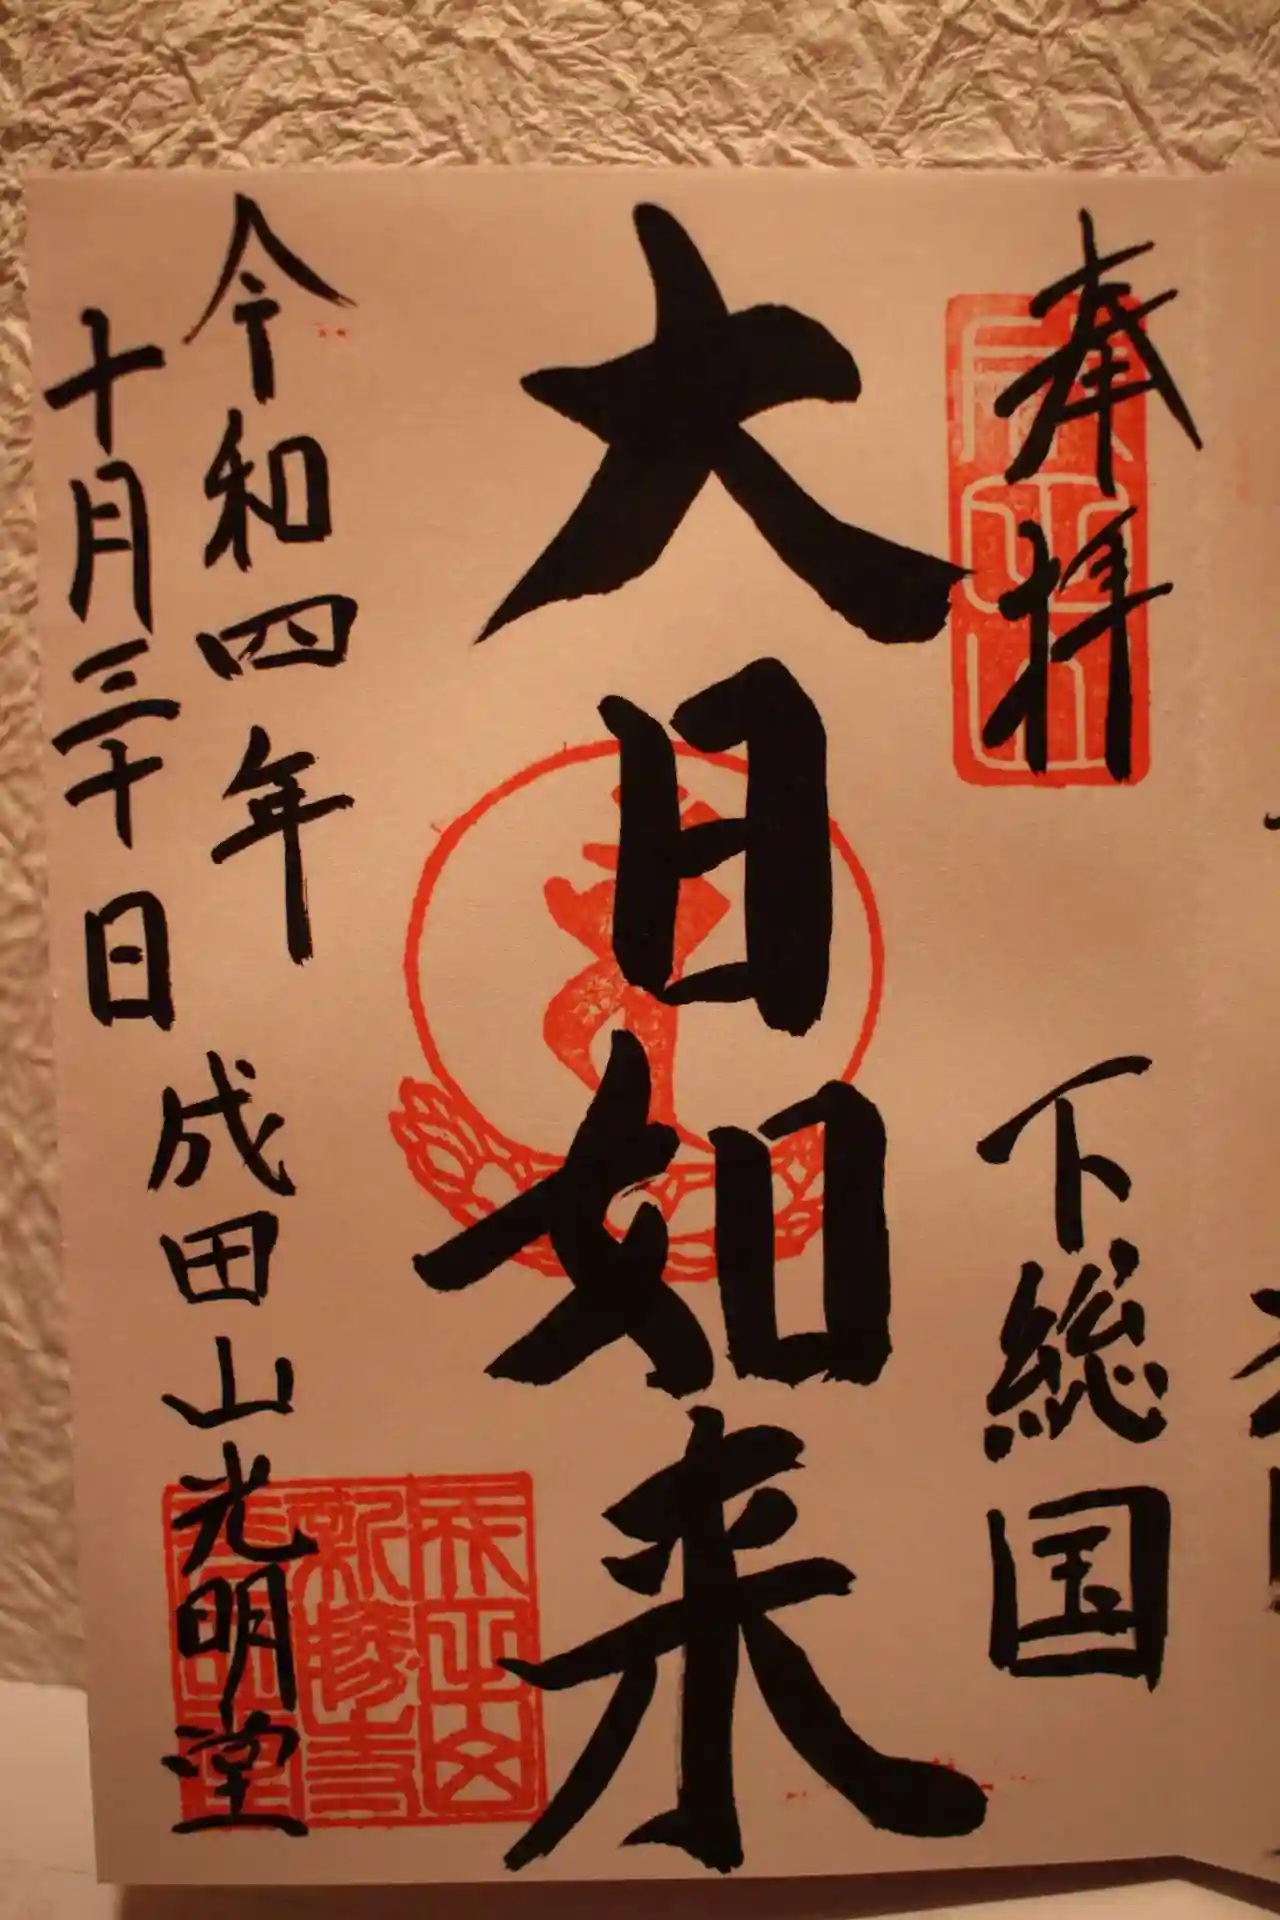 奉拝 下総国
大日如来
令和四年
十月三十日
成田山光明堂
成田山
新勝寺